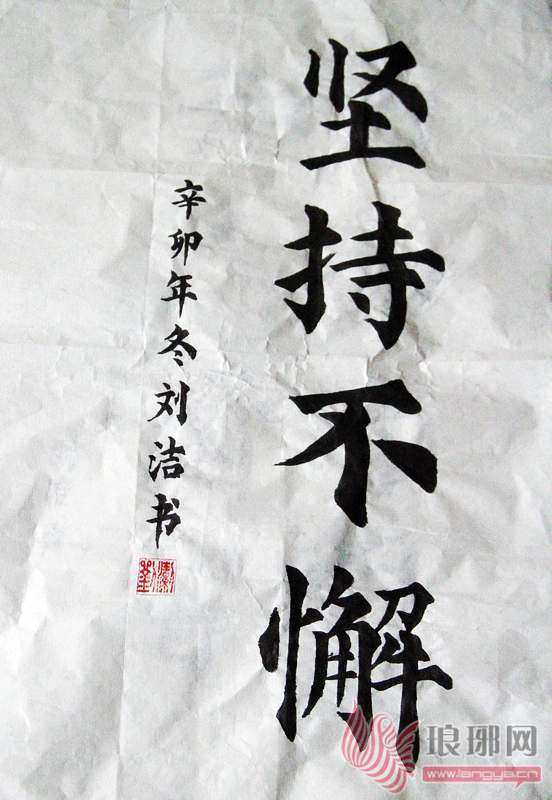 坚持不懈
辛卯年冬刘洁书
琅琊网
www.langya.cn